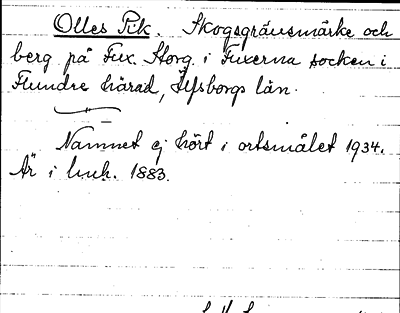 Olles Pik. Skogsgränsmärke och
berg på Fux. Storg. i Fuxerna socken i
Flundre härad, Älfsborgs län.
Namnet ej hört i ortsmålet 1934.
Är i bruk. 1883.